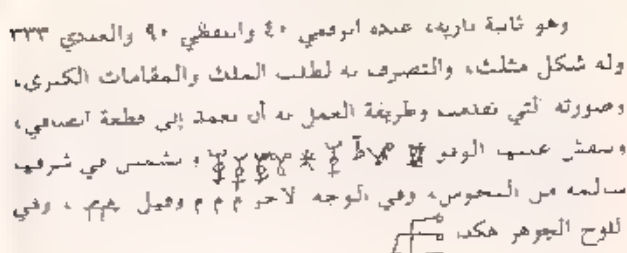 وهو ثابتة نارية، عدده الرقمي ٤٠ واللفظي ٩٠ والعددي ٣٣٣
وله شكل مثلث، والتصرف به لطلب الملك والمقامات الكبرى،
وصورته التي تقدمت وطريقة العمل به أن تعمد إلى قطعة
وتنقش عليها الوفق والشمس في شرفها
سالمة من النحوس، وفي الوجه الآخر م م م م وقيل ، وفي
اللوح الجوهر هكذا